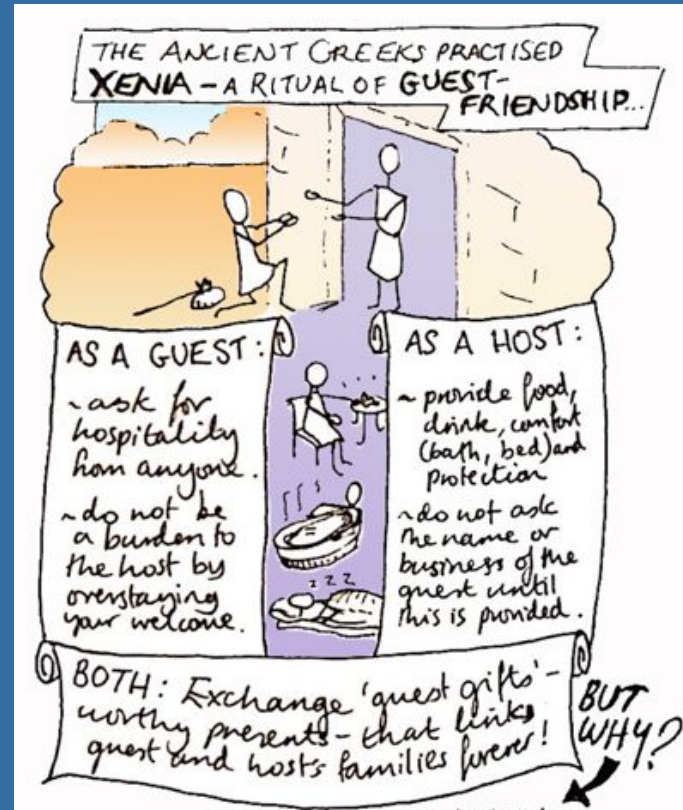 THE ANCIENT GREEKS PRACTISED
XENIA - A RITUAL OF GUEST-
FRIENDSHIP...
AS A GUEST:
~ask for
hospitality
from anyone.
~do not be
a burden to
the host by
overstaying
your welcome.
AS A HOST:
~provide food,
drink, comfort
(bath, bed) and
protection
~do not ask
the name or
business of the
guest until
this is provided.
z z z
BOTH: Exchange 'guest gifts' -
worthy presents - that links
guest and hosts families forever!
BUT
WHY?